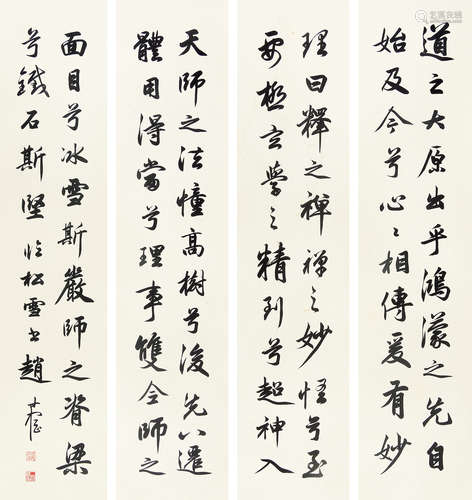 道之大原出乎鴻濛之先自
始及今兮心〻相傳爰有妙
理曰釋之禪禪之妙悟兮至
要極玄學之精到兮超神入
天師之法幢高樹兮後先八還
體用得當兮理事雙全師之
面目兮冰雪斯嚴師之脊梁
兮鐵石斯堅 臨松雪書趙